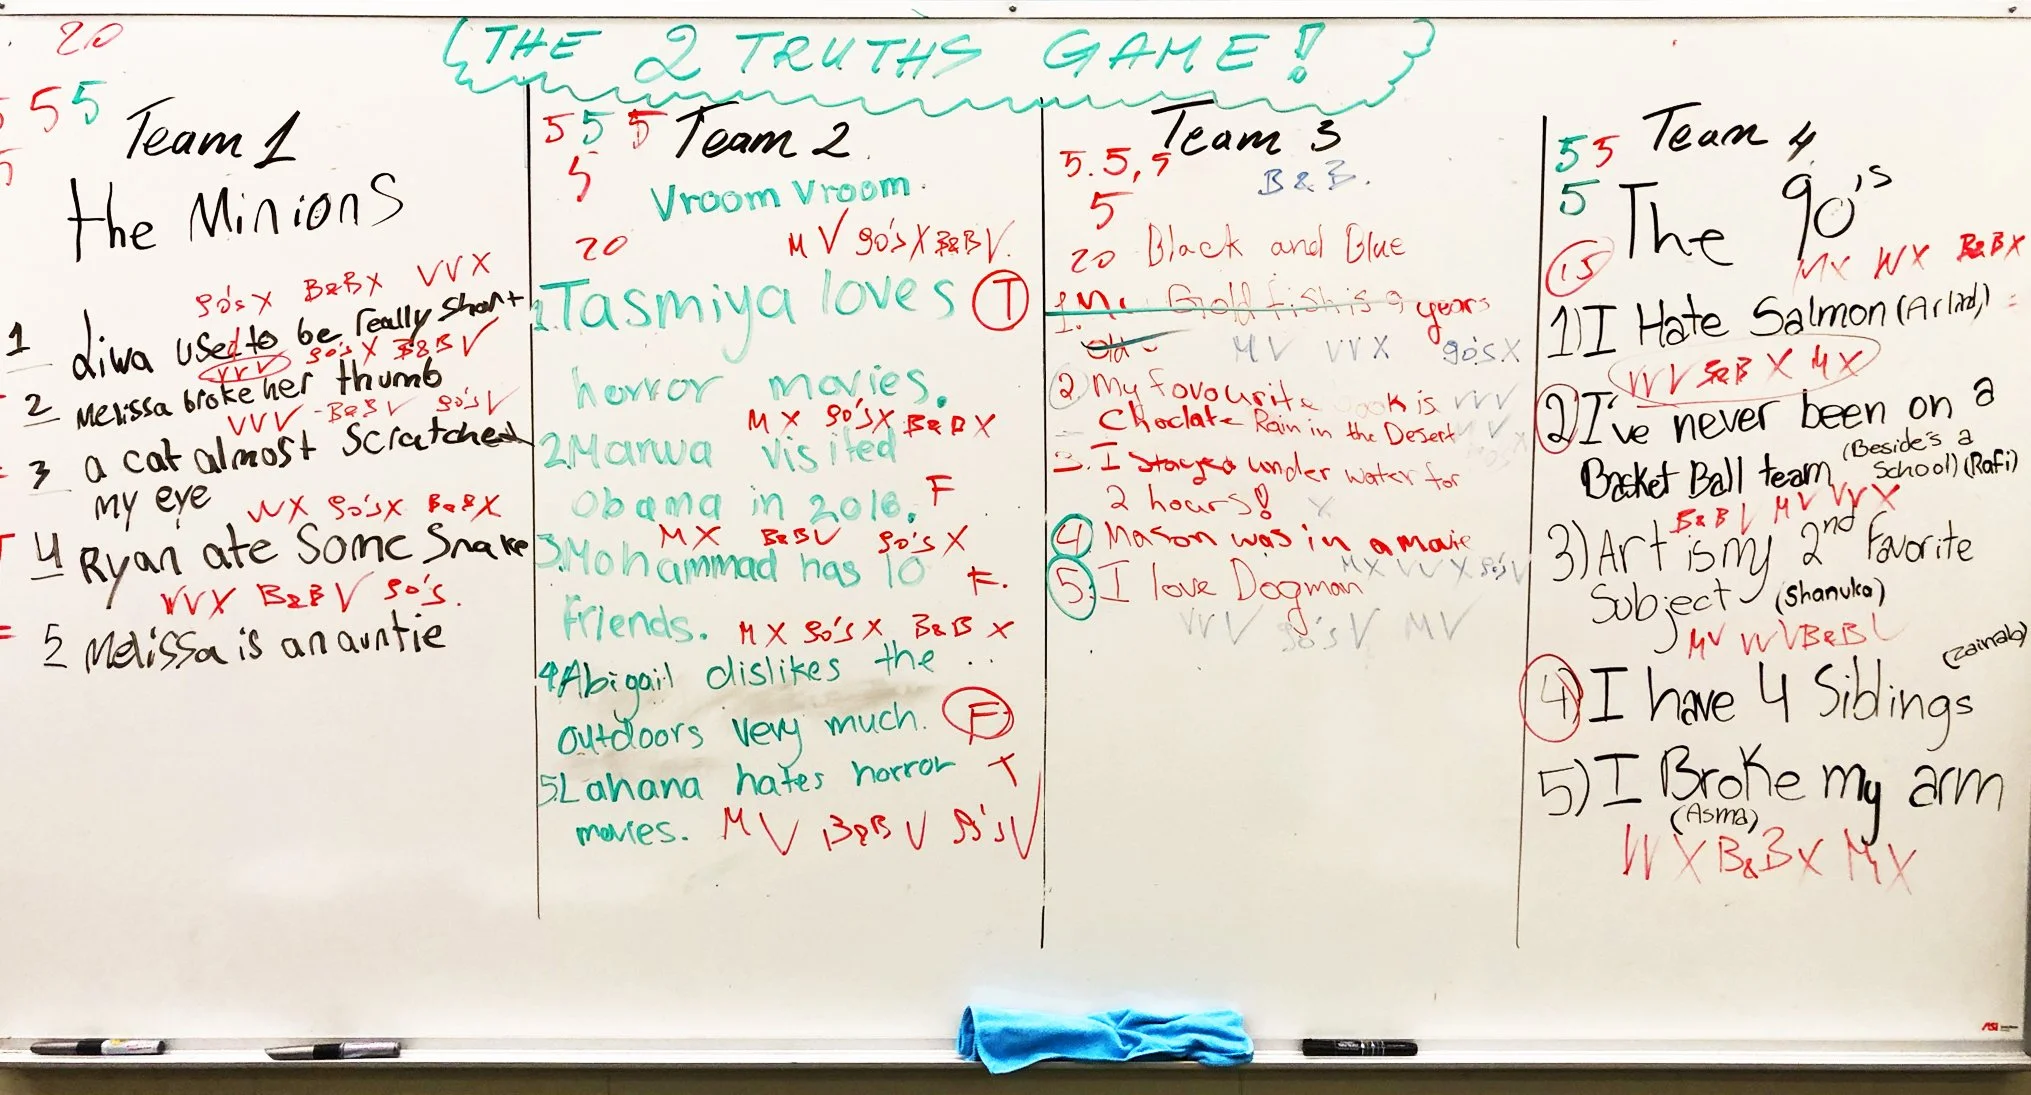 THE 2 TRUTHS GAME!
20
5 5 5
5
Team 1
the Minions
90's X B&B X VV X
1 diwa used to be really short
VV V 90's X B&B V
2 Melissa broke her thumb
VV V - B&B V 90's V
3 a cat almost scratched
my eye
VV X 90's X B&B X
4 Ryan ate Some Snake
VV X B&B V 90's.
5 Melissa is an auntie
5 5 5 Team 2
5
Vroom Vroom.
20 M V 90's X B&B V.
1. Tasmiya loves T
horror movies.
M X 90's X B&B X
2. Marwa visited
Obama in 2016. F
M X B&B V 90's X
3. Mohammad has 10 F.
Friends. M X 90's X B&B X
4 Abigail dislikes the
outdoors very much. F
5. Lahana hates horror T
movies. M V B&B V 90's V
Team 3
5. 5, 5
B&B.
5
20 Black and Blue
1. Gold fish is 9 years
old M V VV X 90's X
2. My favourite book is VV V
Choclate Rain in the Desert M V
3. I stayed under water for
2 hours! X
4 Mason was in a movie
M X VV X 90's V
5. I love Dogman
VV V 90's V M V
5 5 Team 4
5 The 90's
15 M X VV X B&B X
1) I Hate Salmon
VV V B&B X M X
2) I've never been on a
Basket Ball team (Beside's a School) (Rafi)
B&B V M V VV X
3) Art is my 2nd Favorite
Subject (Shanuka)
M V VV V B&B V
(Zainab)
4) I have 4 Siblings
5) I Broke my arm
(Asma)
VV X B&B X M X